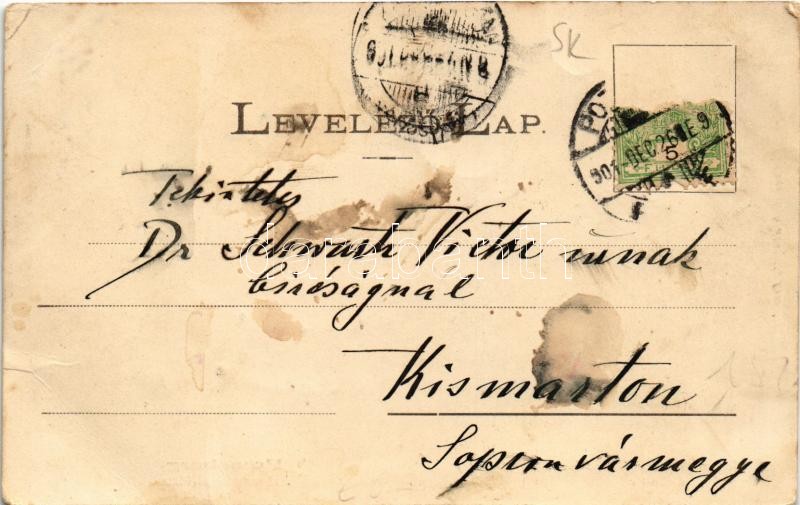 SK
LEVELEZŐ LAP.
901 DEC 26 DE 9
5
Tekintetes
Dr Schwartz Victor urnak
biróságnál
Kismarton
Sopronvármegye
darabanth